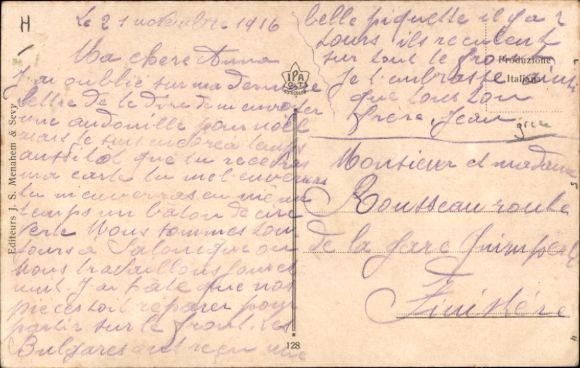 H
Le 21 novembre 1916
Ma chere Anna
J'ai oublié sur ma derniere
lettre de te dire de m'envoyer
une andouille pour noël
mais je suis encore a temps
aussitot que tu recevras
ma carte tu me l'enverras
tu m'enverras en même
temps un baton de cire
verte Nous sommes tou
jours a Salonique ou
nous travaillons jour et
nuit J'ai hate que nos
pieces soit réparer pour
partir sur le front. Les
Bulgares ont reçu une
belle piquette il y a 2
jours ils reculent
sur tout le front
Je t'embrasse ainsi
que tous ton
frere Jean
IPA
CT
Produzione
Italiana
Monsieur et madame
Rousseau route
de la gare Quimperlé
Finistère
Editeurs J. S. Menahem & Sevy
128